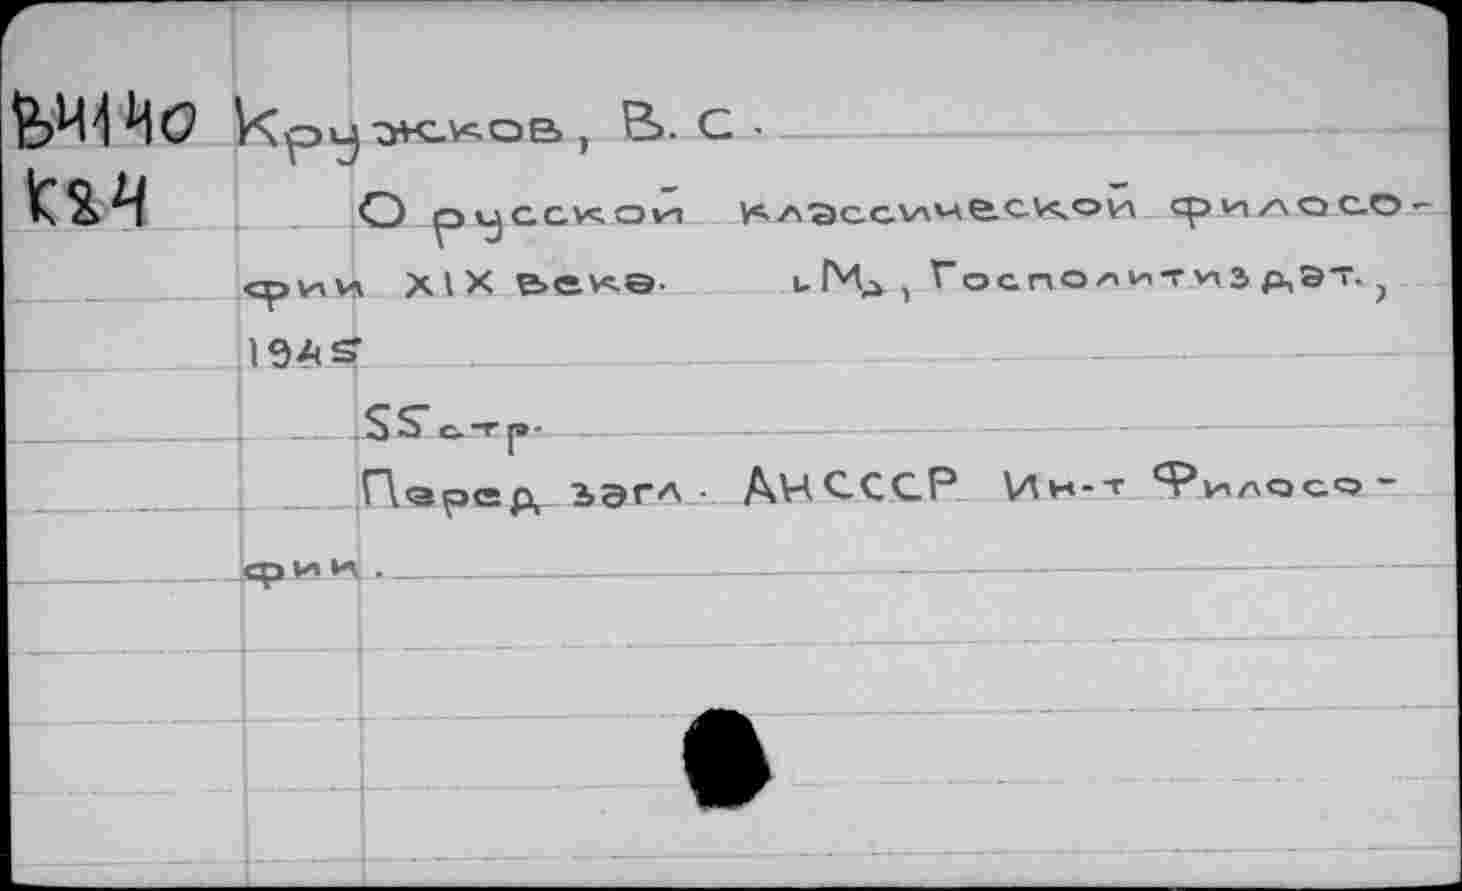 B4140 Кружков, В. С.
K84 О русской классической филосо-
фии XIX века. М., Госполитиздат.,
1945
55 стр.
Перед загл. АНСССР Ин-т Филосо-
фии.